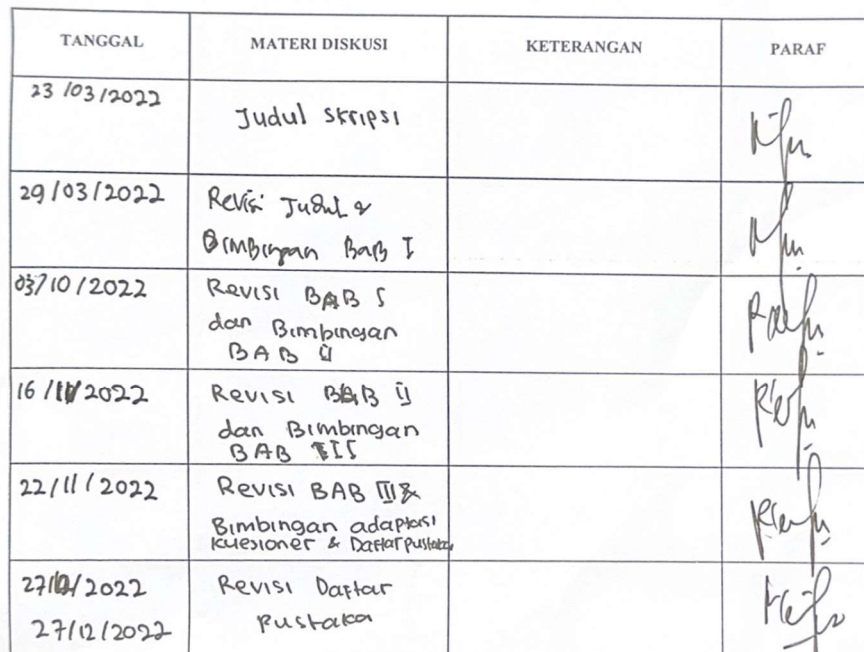 TANGGAL MATERI DISKUSI KETERANGAN PARAF
23/03/2022 Judul Skripsi
29/03/2022 Revisi Judul &
Bimbingan BAB I
03/10/2022 Revisi BAB I
dan Bimbingan
BAB II
16/11/2022 Revisi BAB II
dan Bimbingan
BAB III
22/11/2022 Revisi BAB III &
Bimbingan adaptasi
kuesioner & Daftar pustaka
27/12/2022 Revisi Daftar
27/12/2022 Pustaka